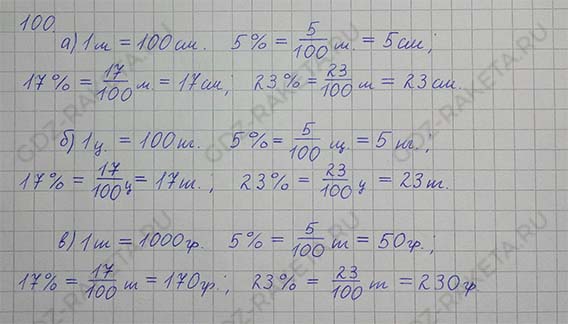 100.
а) 1 м = 100 см. 5% = 5/100 м. = 5 см;
17% = 17/100 м. = 17 см; 23% = 23/100 м = 23 см.
б) 1 ц. = 100 кг. 5% = 5/100 ц. = 5 кг.;
17% = 17/100 ц = 17 кг.; 23% = 23/100 ц = 23 кг.
в) 1 кг = 1000 гр. 5% = 5/100 кг = 50 гр.;
17% = 17/100 кг = 170 гр.; 23% = 23/100 кг = 230 гр
GDZ-RAKETA.RU